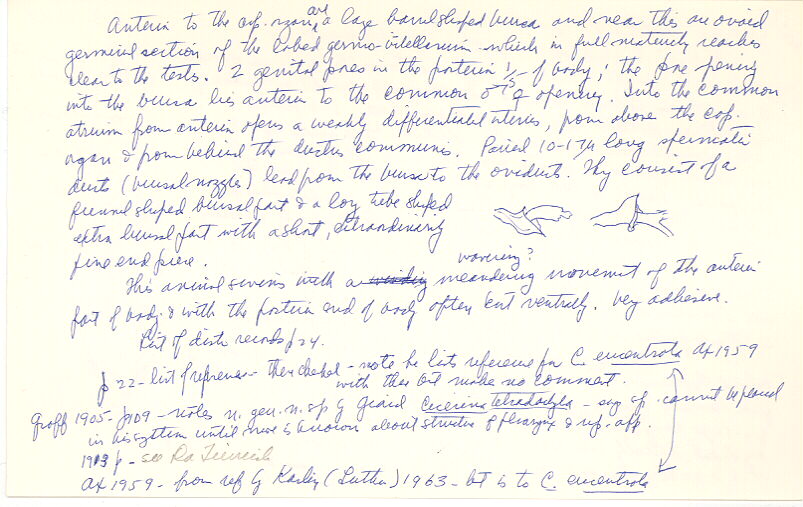 Anterior to the cop. organ are a large barrel shaped bursa and near this an ovoid
germinal section of the lobed germo-vitellarium which in full maturity reaches
clear to the testes. 2 genital pores in the posterior 1/3 of body; the pore opening
into the bursa lies anterior to the common ♂ ♀ opening. Into the common
atrium from anterior opens a weakly differentiated uterus, from above the cop.
organ & from behind the ductus communis. Paired 10-17µ long spermatic
ducts (bursal nozzles) lead from the bursa to the oviducts. They consist of a
funnel shaped bursal part & a long tube shaped
extra bursal part with a short, extraordinarily
fine end piece.
wavering?
This animal swims with a winding meandering movement of the anterior
part of body & with the posterior end of body often bent ventrally. Very adhesive.
List of distr records p 24.
p 22 - list of references - then checked - note he lists reference for C. eucentrota Ax 1959
with this but make no comment.
Graff 1905 - p 109 - notes n. gen. n. sp by Giard Cicerina tetradactyla - says sp. cannot be placed
in his system until more is known about structure of pharynx & rep. app.
1913 p - see
Ax 1959 - from ref by Karling (Luther) 1963 - but is to C. eucentrota